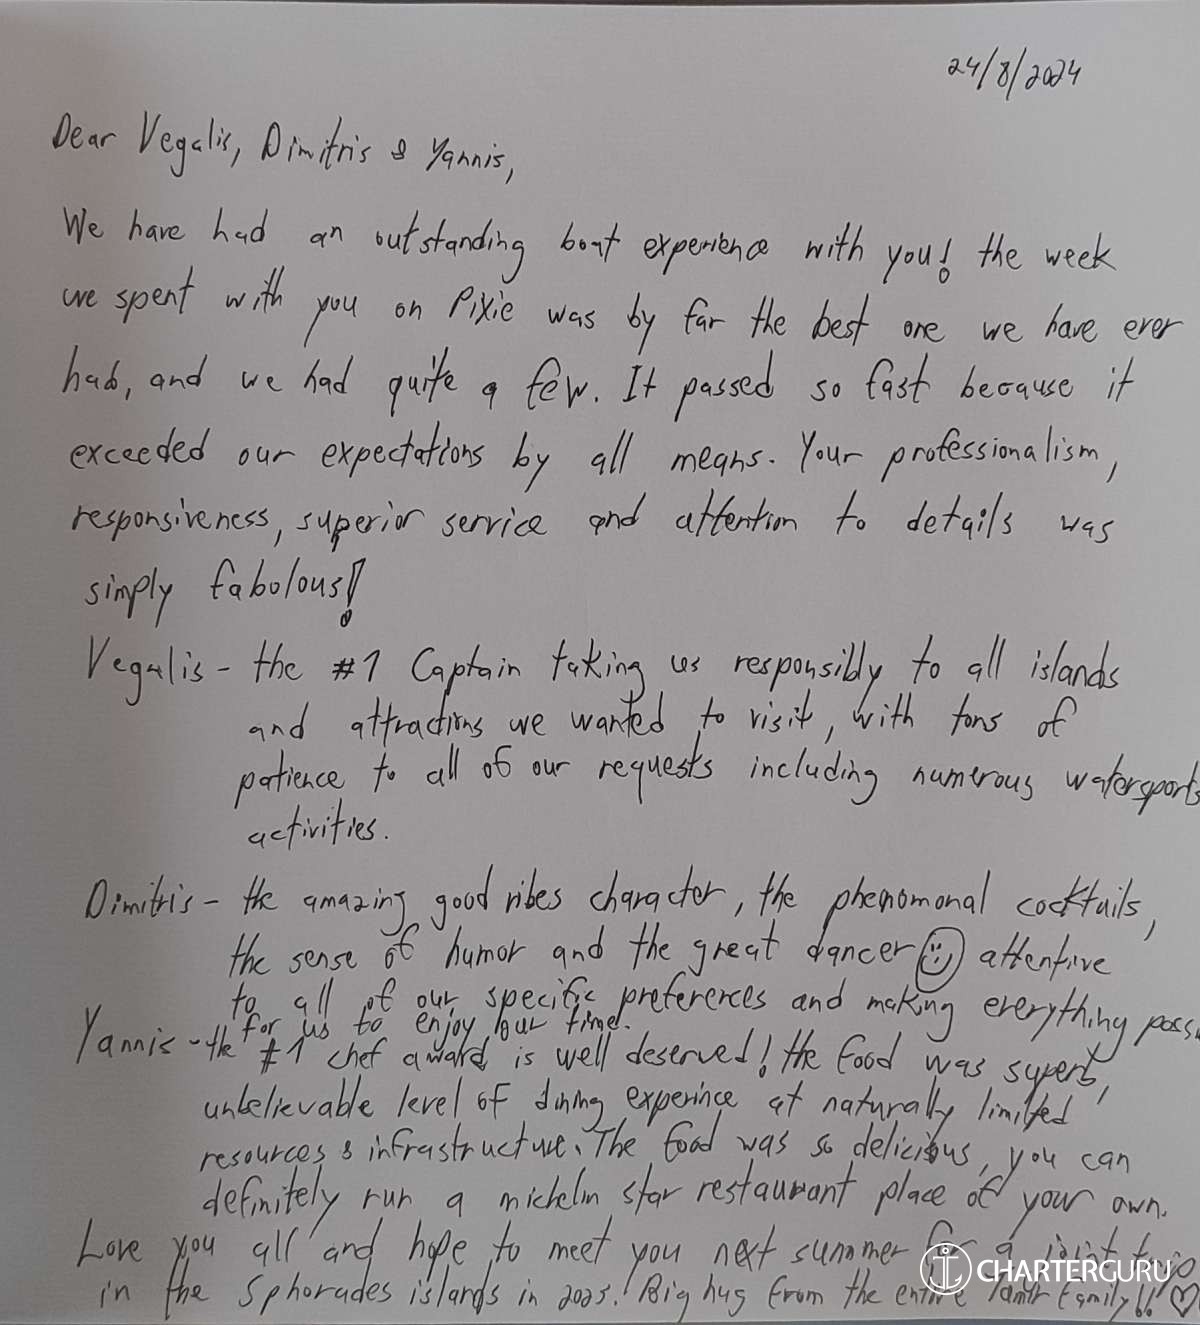 24/8/2024
Dear Vegalis, Dimitris & Yannis,
We have had an outstanding boat experience with you! the week
we spent with you on Pixie was by far the best one we have ever
had, and we had quite a few. It passed so fast because it
exceeded our expectations by all means. Your professionalism,
responsiveness, superior service and attention to details was
simply fabolous!
Vegalis - the #1 Captain taking us responsibly to all islands
and attractions we wanted to visit, with tons of
patience to all of our requests including numerous watersports
activities.
Dimitris - the amazing good vibes character, the phenomonal cocktails,
the sense of humor and the great dancer attentive
to all of our specific preferences and making everything
for us to enjoy our time.
Yannis - the #1 chef award is well deserved! the food was superb,
unbelievable level of dining experince at naturally limited
resources & infrastructure. The food was so delicious, you can
definitely run a michelin star restaurant place of your own.
Love you all and hope to meet you next summer for a joint
in the Sphorades islands in 2025! Big hug from the entire family!! ♡
CHARTERGURU